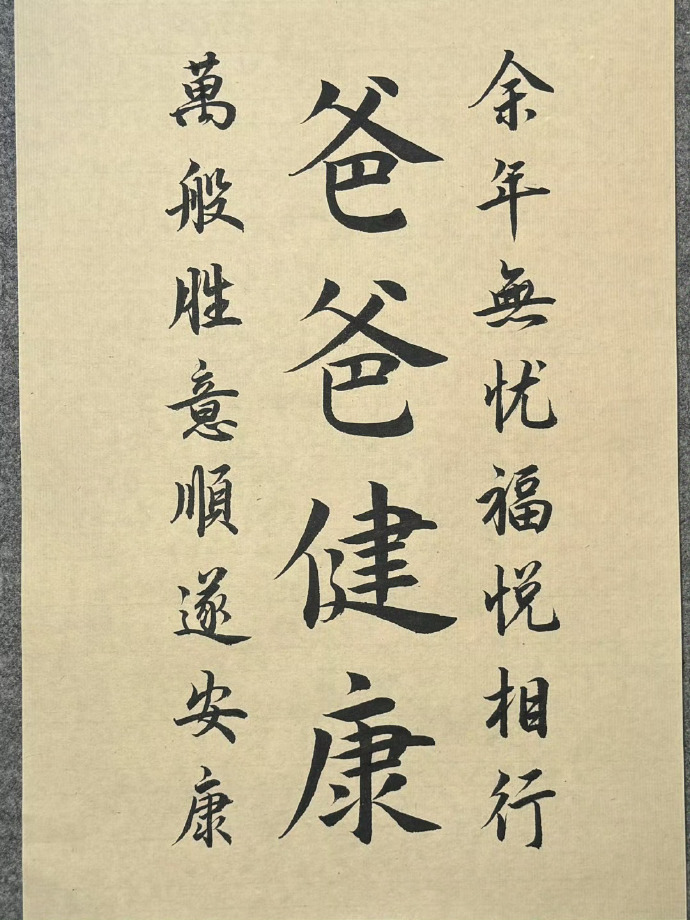 余年無忧福悦相行
爸爸健康
萬般胜意順遂安康